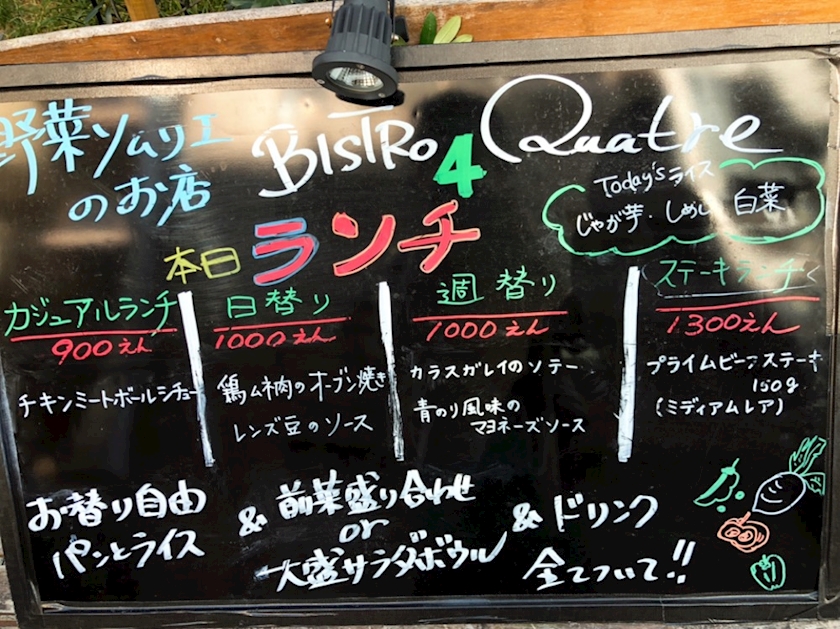 野菜ソムリエ
のお店
BISTRO 4 Quatre
Today'sライス
じゃが芋・しめじ 白菜
本日 ランチ
カジュアルランチ
900えん
チキンミートボールシチュー
日替り
1000えん
鶏ムネ肉のオーブン焼き
レンズ豆のソース
週替り
1000えん
カラスガレイのソテー
青のり風味の
マヨネーズソース
ステーキランチ
1300えん
プライムビーフステーキ
150g
(ミディアムレア)
お替り自由
パンとライス
&
前菜盛り合わせ
or
大盛サラダボウル
& ドリンク
全てついて!!